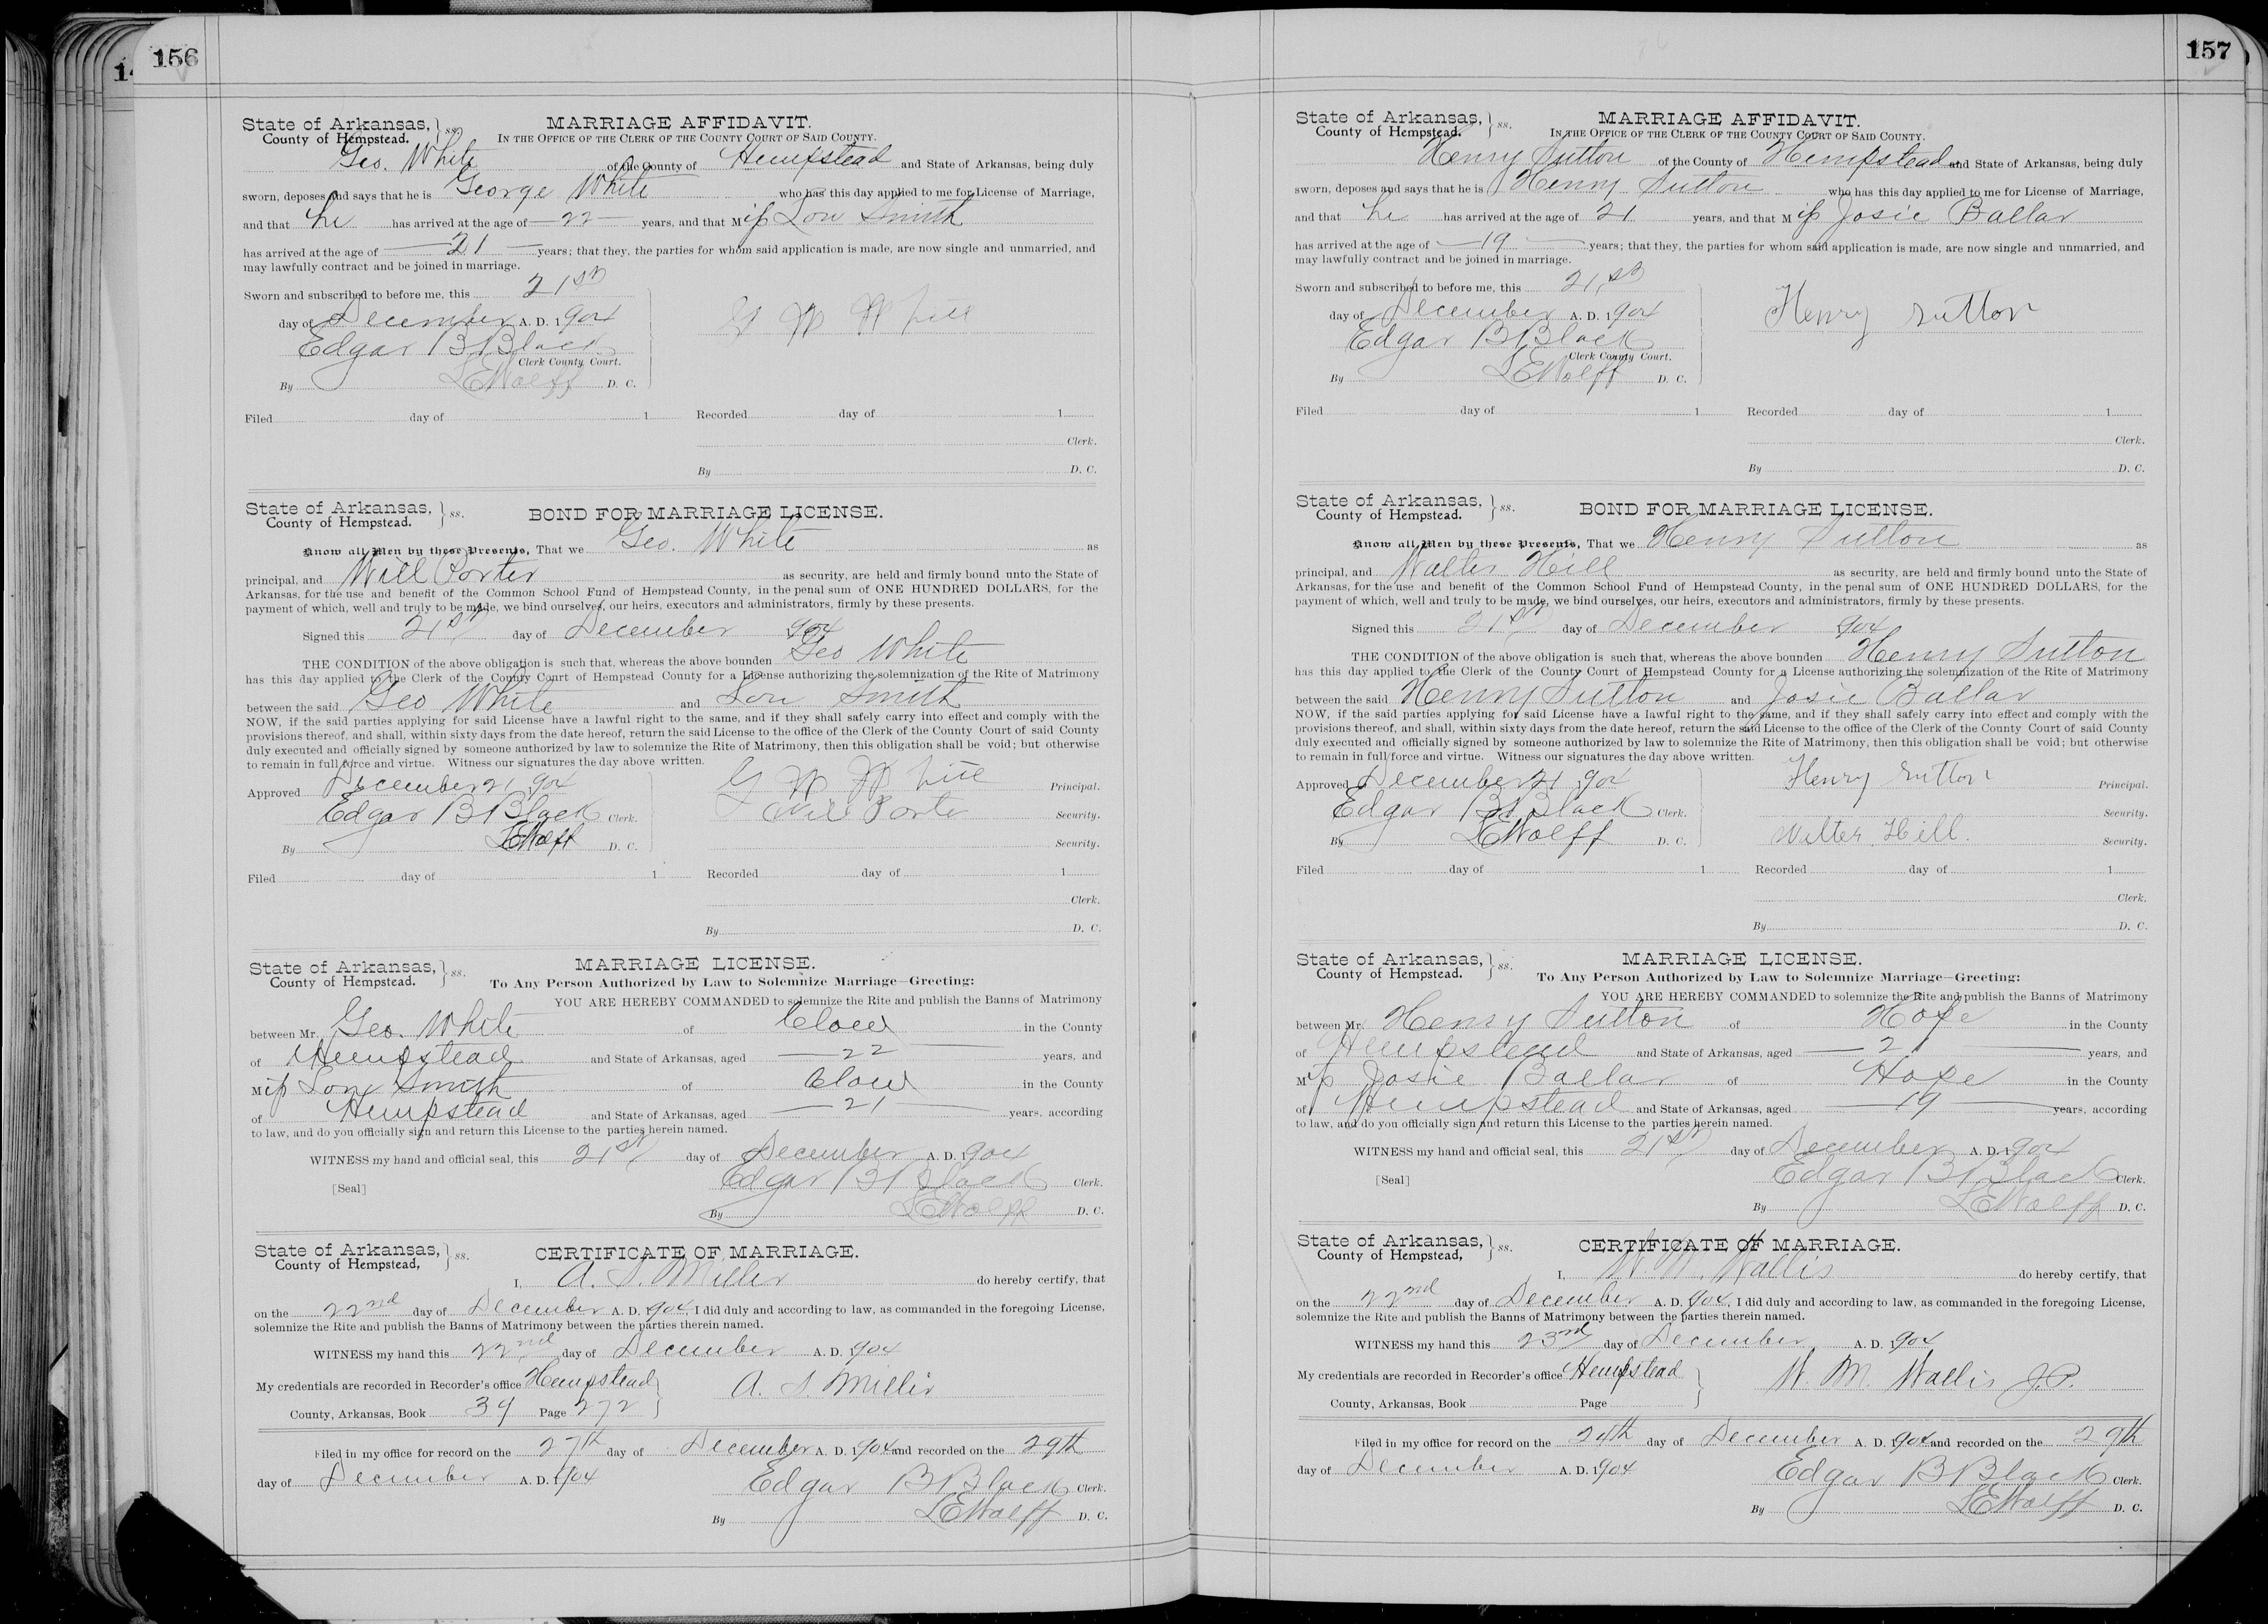 156
State of Arkansas, } ss. MARRIAGE AFFIDAVIT.
County of Hempstead. IN THE OFFICE OF THE CLERK OF THE COUNTY COURT OF SAID COUNTY.
Geo. White of the County of Hempstead and State of Arkansas, being duly
sworn, deposes and says that he is George White who has this day applied to me for License of Marriage,
and that he has arrived at the age of 22 years, and that Miss Lou Smith
has arrived at the age of 21 years; that they, the parties for whom said application is made, are now single and unmarried, and
may lawfully contract and be joined in marriage.
Sworn and subscribed to before me, this 21st
day of December A. D. 1904 G W White
Edgar B Black
Clerk County Court.
By LEWolff D. C.
Filed day of 1 Recorded day of 1
Clerk.
By D. C.
State of Arkansas, } ss. BOND FOR MARRIAGE LICENSE.
County of Hempstead.
Know all Men by these Presents, That we Geo. White as
principal, and Will Porter as security, are held and firmly bound unto the State of
Arkansas, for the use and benefit of the Common School Fund of Hempstead County, in the penal sum of ONE HUNDRED DOLLARS, for the
payment of which, well and truly to be made, we bind ourselves, our heirs, executors and administrators, firmly by these presents.
Signed this 21st day of December 904
THE CONDITION of the above obligation is such that, whereas the above bounden Geo White
has this day applied to the Clerk of the County Court of Hempstead County for a License authorizing the solemnization of the Rite of Matrimony
between the said Geo White and Lou Smith
NOW, if the said parties applying for said License have a lawful right to the same, and if they shall safely carry into effect and comply with the
provisions thereof, and shall, within sixty days from the date hereof, return the said License to the office of the Clerk of the County Court of said County
duly executed and officially signed by someone authorized by law to solemnize the Rite of Matrimony, then this obligation shall be void; but otherwise
to remain in full force and virtue. Witness our signatures the day above written.
Approved December 21 904 G W White Principal.
Edgar B Black Clerk. Will Porter Security.
By LEWolff D. C. Security.
Filed day of 1 Recorded day of 1
Clerk.
By D. C.
State of Arkansas, } ss. MARRIAGE LICENSE.
County of Hempstead. To Any Person Authorized by Law to Solemnize Marriage—Greeting:
YOU ARE HEREBY COMMANDED to solemnize the Rite and publish the Banns of Matrimony
between Mr. Geo. White of Clow in the County
of Hempstead and State of Arkansas, aged 22 years, and
Miss Lou Smith of Clow in the County
of Hempstead and State of Arkansas, aged 21 years, according
to law, and do you officially sign and return this License to the parties herein named.
WITNESS my hand and official seal, this 21st day of December A. D. 1904
[Seal] Edgar B Black Clerk.
By LEWolff D. C.
State of Arkansas, } ss. CERTIFICATE OF MARRIAGE.
County of Hempstead,
I, A. S. Miller do hereby certify, that
on the 22nd day of December A. D. 1904, I did duly and according to law, as commanded in the foregoing License,
solemnize the Rite and publish the Banns of Matrimony between the parties therein named.
WITNESS my hand this 22nd day of December A. D. 1904
My credentials are recorded in Recorder's office Hempstead A. S. Miller
County, Arkansas, Book 39 Page 272
Filed in my office for record on the 27th day of December A. D. 1904 and recorded on the 29th
day of December A. D. 1904 Edgar B Black Clerk.
By LEWolff D. C.
157
State of Arkansas, } ss. MARRIAGE AFFIDAVIT.
County of Hempstead. IN THE OFFICE OF THE CLERK OF THE COUNTY COURT OF SAID COUNTY.
Henry Sutton of the County of Hempstead and State of Arkansas, being duly
sworn, deposes and says that he is Henry Sutton who has this day applied to me for License of Marriage,
and that he has arrived at the age of 21 years, and that Miss Josie Ballar
has arrived at the age of 19 years; that they, the parties for whom said application is made, are now single and unmarried, and
may lawfully contract and be joined in marriage.
Sworn and subscribed to before me, this 21st
day of December A. D. 1904 Henry Sutton
Edgar B Black
Clerk County Court.
By LEWolff D. C.
Filed day of 1 Recorded day of 1
Clerk.
By D. C.
State of Arkansas, } ss. BOND FOR MARRIAGE LICENSE.
County of Hempstead.
Know all Men by these Presents, That we Henry Sutton as
principal, and Walter Hill as security, are held and firmly bound unto the State of
Arkansas, for the use and benefit of the Common School Fund of Hempstead County, in the penal sum of ONE HUNDRED DOLLARS, for the
payment of which, well and truly to be made, we bind ourselves, our heirs, executors and administrators, firmly by these presents.
Signed this 21st day of December 904
THE CONDITION of the above obligation is such that, whereas the above bounden Henry Sutton
has this day applied to the Clerk of the County Court of Hempstead County for a License authorizing the solemnization of the Rite of Matrimony
between the said Henry Sutton and Josie Ballar
NOW, if the said parties applying for said License have a lawful right to the same, and if they shall safely carry into effect and comply with the
provisions thereof, and shall, within sixty days from the date hereof, return the said License to the office of the Clerk of the County Court of said County
duly executed and officially signed by someone authorized by law to solemnize the Rite of Matrimony, then this obligation shall be void; but otherwise
to remain in full force and virtue. Witness our signatures the day above written.
Approved December 21 904 Henry Sutton Principal.
Edgar B Black Clerk. Security.
By LEWolff D. C. Walter Hill. Security.
Filed day of 1 Recorded day of 1
Clerk.
By D. C.
State of Arkansas, } ss. MARRIAGE LICENSE.
County of Hempstead. To Any Person Authorized by Law to Solemnize Marriage—Greeting:
YOU ARE HEREBY COMMANDED to solemnize the Rite and publish the Banns of Matrimony
between Mr. Henry Sutton of Hope in the County
of Hempstead and State of Arkansas, aged 21 years, and
Miss Josie Ballar of Hope in the County
of Hempstead and State of Arkansas, aged 19 years, according
to law, and do you officially sign and return this License to the parties herein named.
WITNESS my hand and official seal, this 21st day of December A. D. 1904
[Seal] Edgar B Black Clerk.
By LEWolff D. C.
State of Arkansas, } ss. CERTIFICATE OF MARRIAGE.
County of Hempstead,
I, W. M. Wallis do hereby certify, that
on the 22nd day of December A. D. 1904, I did duly and according to law, as commanded in the foregoing License,
solemnize the Rite and publish the Banns of Matrimony between the parties therein named.
WITNESS my hand this 23rd day of December A. D. 1904
My credentials are recorded in Recorder's office Hempstead W. M. Wallis J.P.
County, Arkansas, Book Page
Filed in my office for record on the 24th day of December A. D. 1904 and recorded on the 29th
day of December A. D. 1904 Edgar B Black Clerk.
By LEWolff D. C.